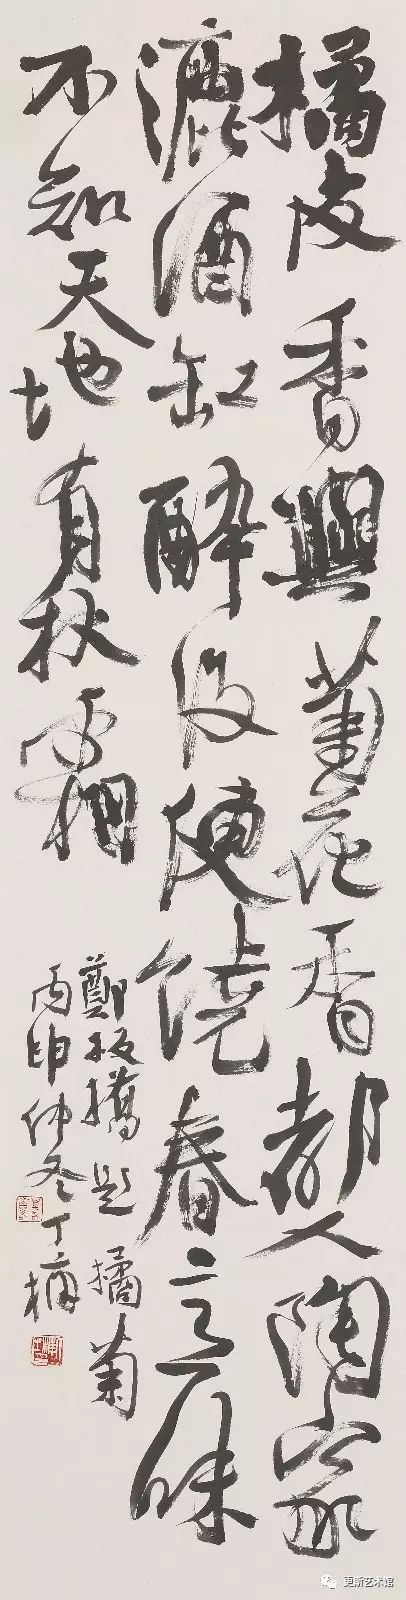 橘皮香與菊花香都入陶家
漉酒缸醉後便饶春意味
不知天地有秋霜
鄭板橋題橘菊
丙申仲冬丁
更斯艺术馆